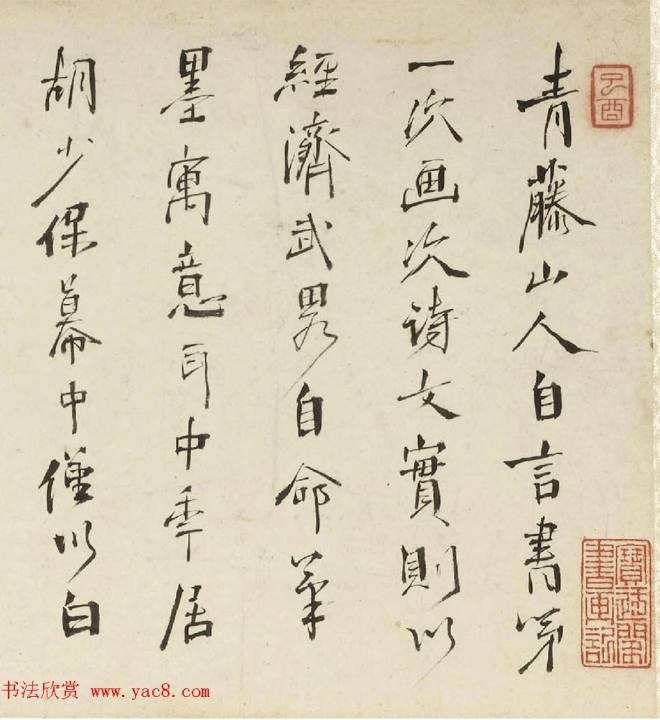 青藤山人自言書第
一次画次詩文實則以
經濟武畧自命筆
墨寓意耳中年居
胡少保幕中僅以白
寶迂閣書畫記
书法欣赏 www.yac8.com